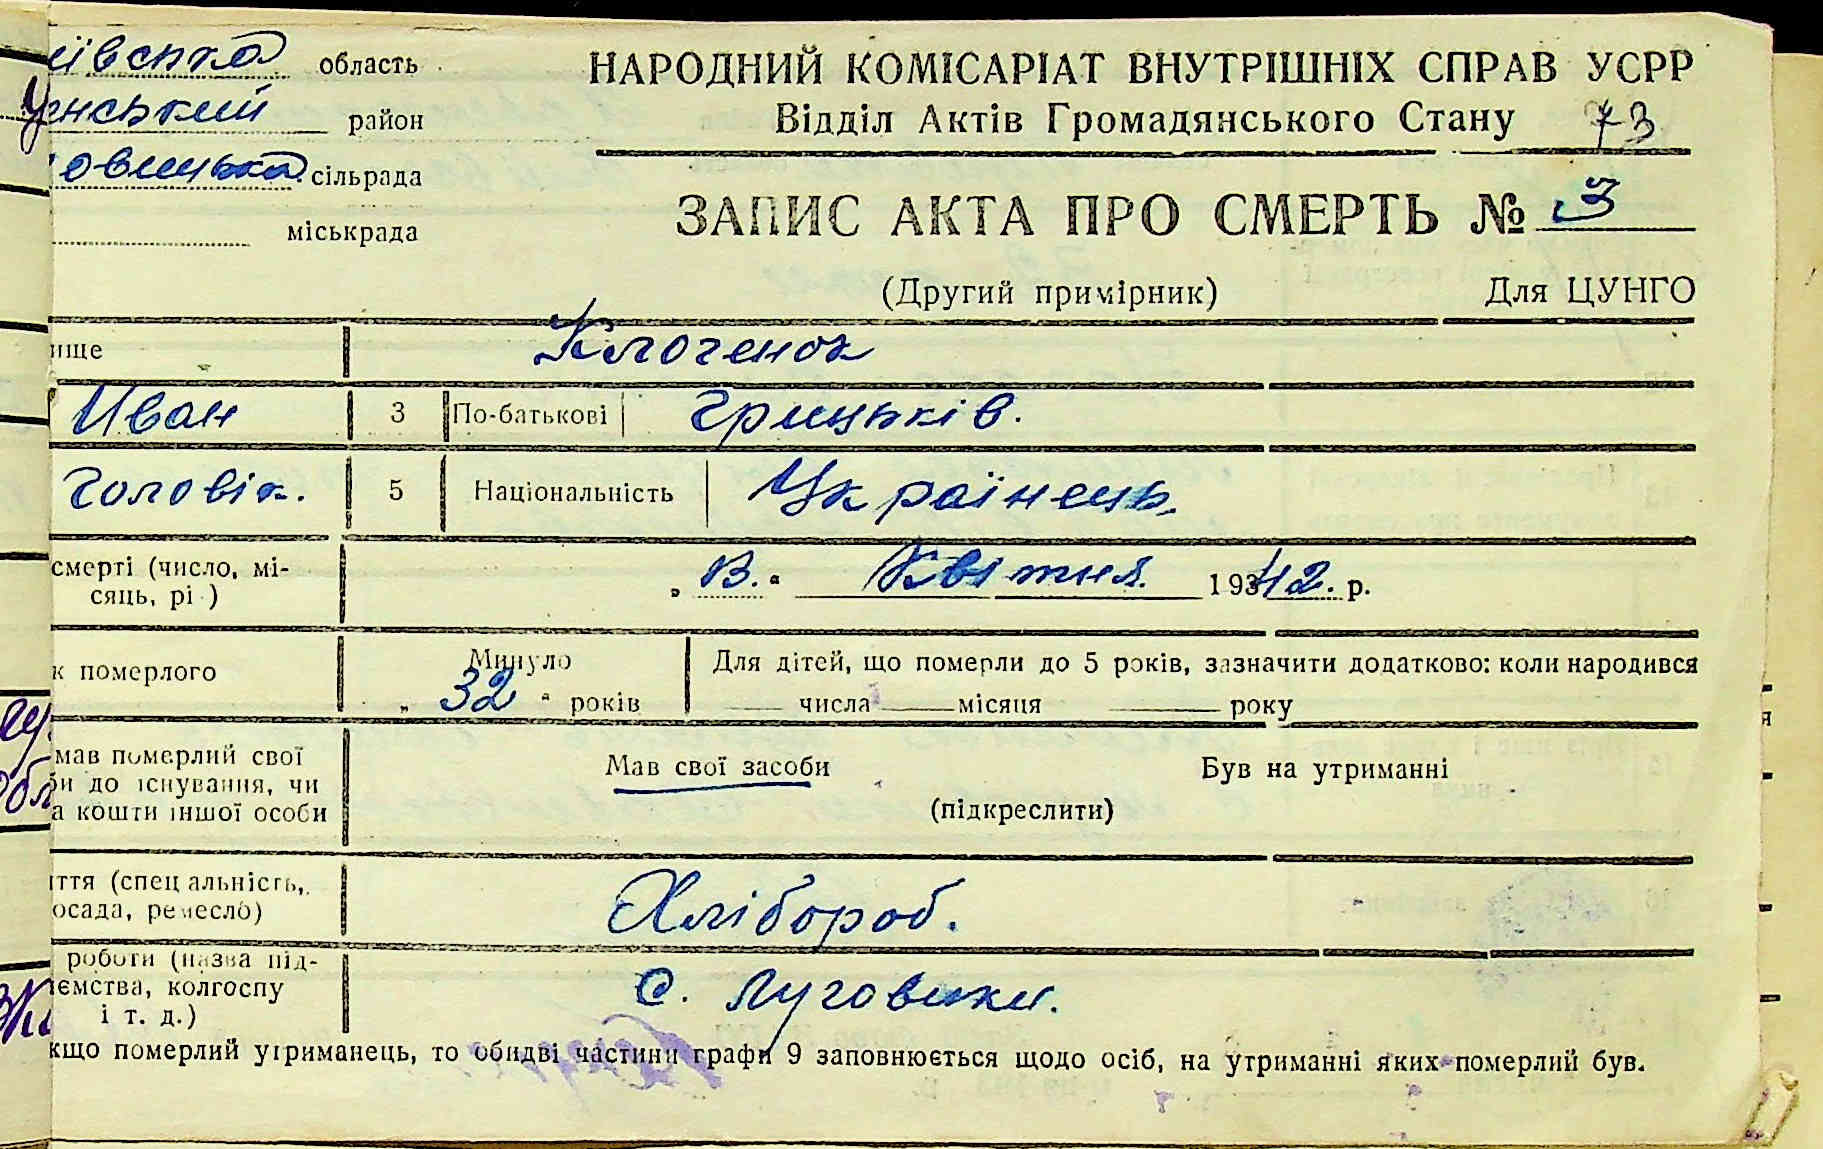 ївська область
нський район
овицька сільрада
міськрада
НАРОДНИЙ КОМІСАРІАТ ВНУТРІШНІХ СПРАВ УСРР
Відділ Актів Громадянського Стану 73
ЗАПИС АКТА ПРО СМЕРТЬ № 3
(Другий примірник) Для ЦУНГО
ище Клоченок
Иван 3 По-батькові Грицьків.
Чоловік. 5 Національність Українець.
смерті (число, мі-
сяць, рі ) „ 13. " Квітня 193 42. р.
к померлого Минуло
„ 32 " років
Для дітей, що померли до 5 років, зазначити додатково: коли народився
числа місяця року
мав померлий свої
би до існування, чи
а кошти іншої особи
Мав свої засоби Був на утриманні
(підкреслити)
яття (спец альність,
осада, ремесло) Хлібороб.
роботи (назва під-
ємства, колгоспу
і т. д.) С. Луговики.
кщо померлий утриманець, то обидві частини графи 9 заповнюється щодо осіб, на утриманні яких померлий був.